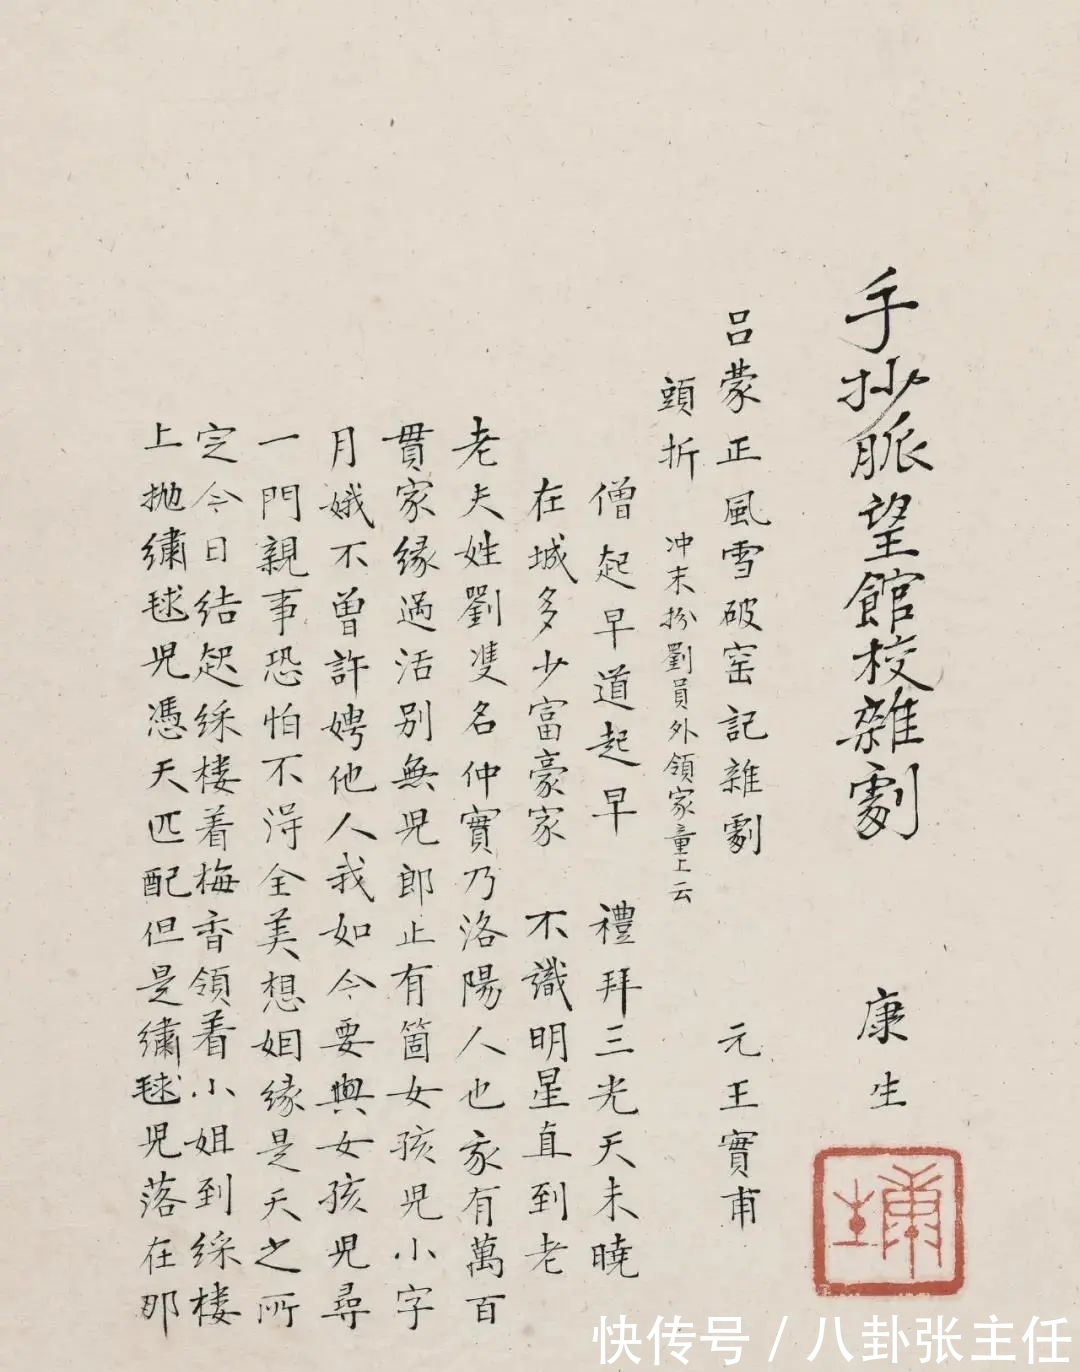 手抄脈望館校雜劇 康生
呂蒙正風雪破窑記雜劇 元王實甫
頭折 冲末扮劉員外領家童上云
僧起早道起早 禮拜三光天未曉
在城多少富豪家 不識明星直到老
老夫姓劉雙名仲實乃洛陽人也家有萬百
貫家緣過活别無兒郎止有箇女孩兒小字
月娥不曾許娉他人我如今要與女孩兒尋
一門親事恐怕不得全美想姻緣是天之所
定今日結起綵楼着梅香領着小姐到綵楼
上抛繡毬兒憑天匹配但是繡毬兒落在那
康生
快传号 / 八卦张主任